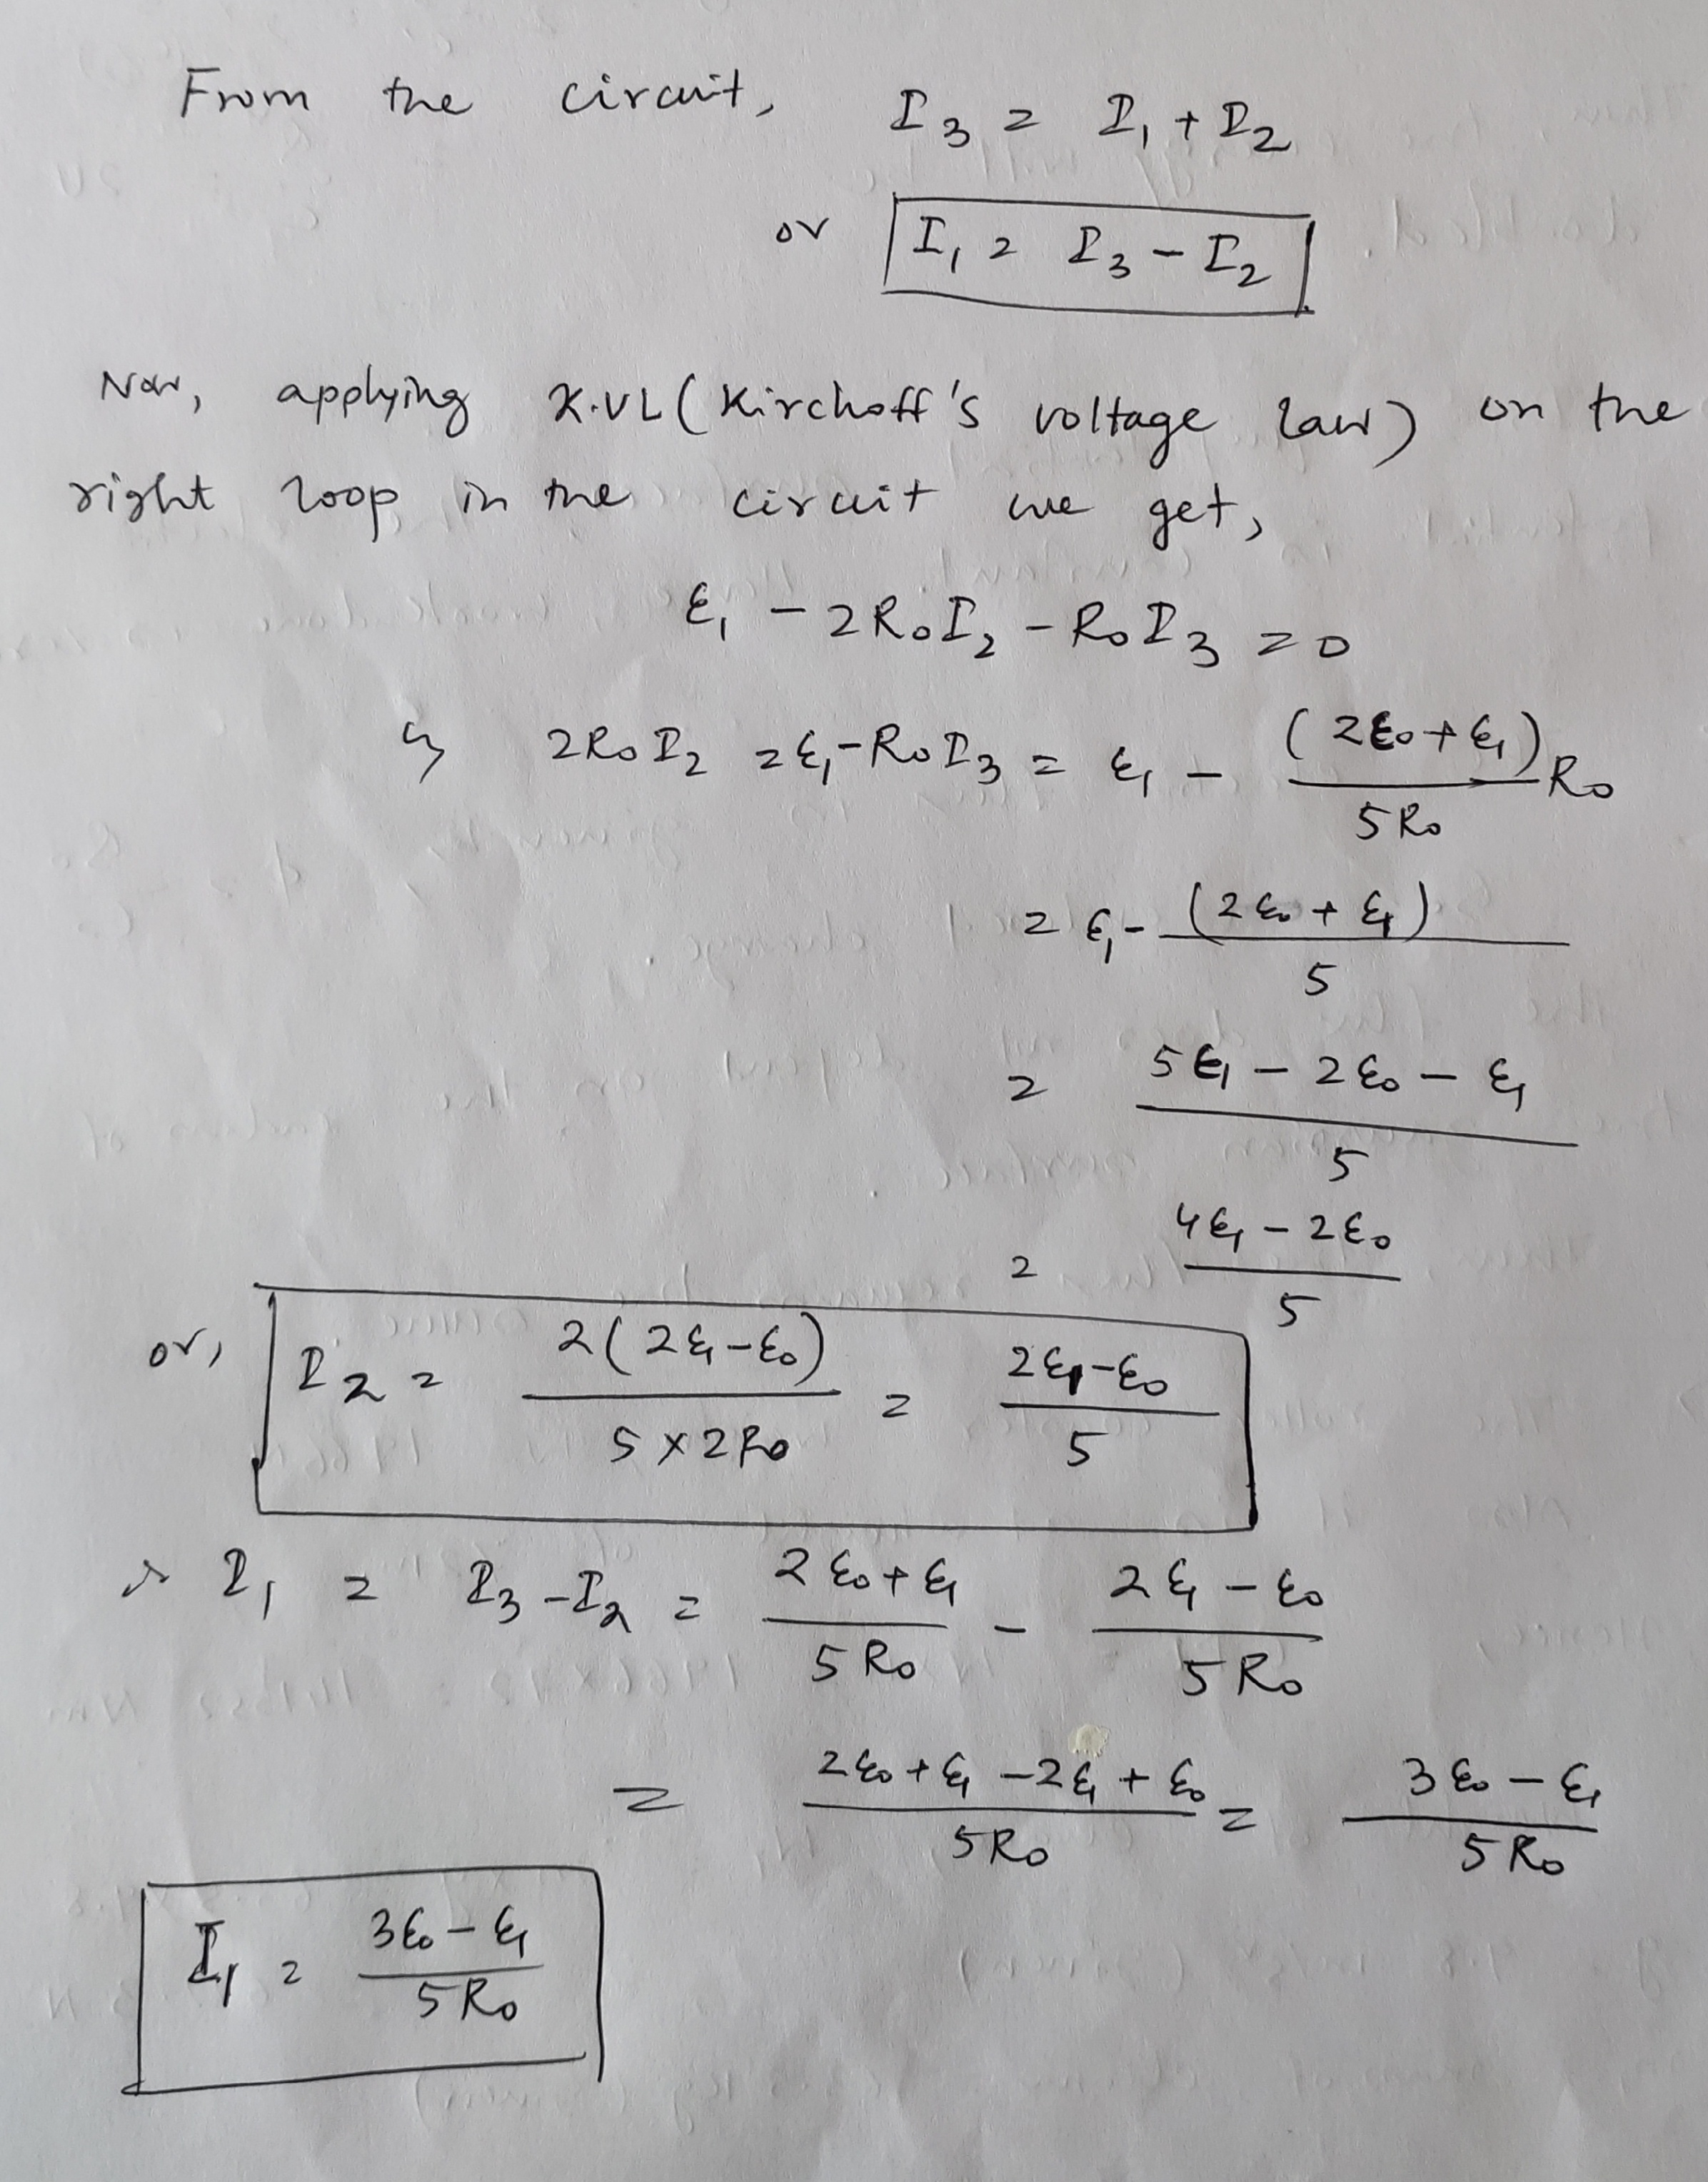 From the circuit, I₃ = I₁ + I₂
or I₁ = I₃ - I₂
Now, applying K.VL (Kirchoff's voltage law) on the
right loop in the circuit we get,
ε₁ - 2R₀I₂ - R₀I₃ = 0
↳ 2R₀I₂ = ε₁ - R₀I₃ = ε₁ - (2ε₀ + ε₁)/5R₀ R₀
= ε₁ - (2ε₀ + ε₁)/5
= (5ε₁ - 2ε₀ - ε₁)/5
= (4ε₁ - 2ε₀)/5
or, I₂ = 2(2ε₁ - ε₀)/(5 × 2R₀) = (2ε₁ - ε₀)/5
I₁ = I₃ - I₂ = (2ε₀ + ε₁)/5R₀ - (2ε₁ - ε₀)/5R₀
= (2ε₀ + ε₁ - 2ε₁ + ε₀)/5R₀ = (3ε₀ - ε₁)/5R₀
I₁ = (3ε₀ - ε₁)/5R₀